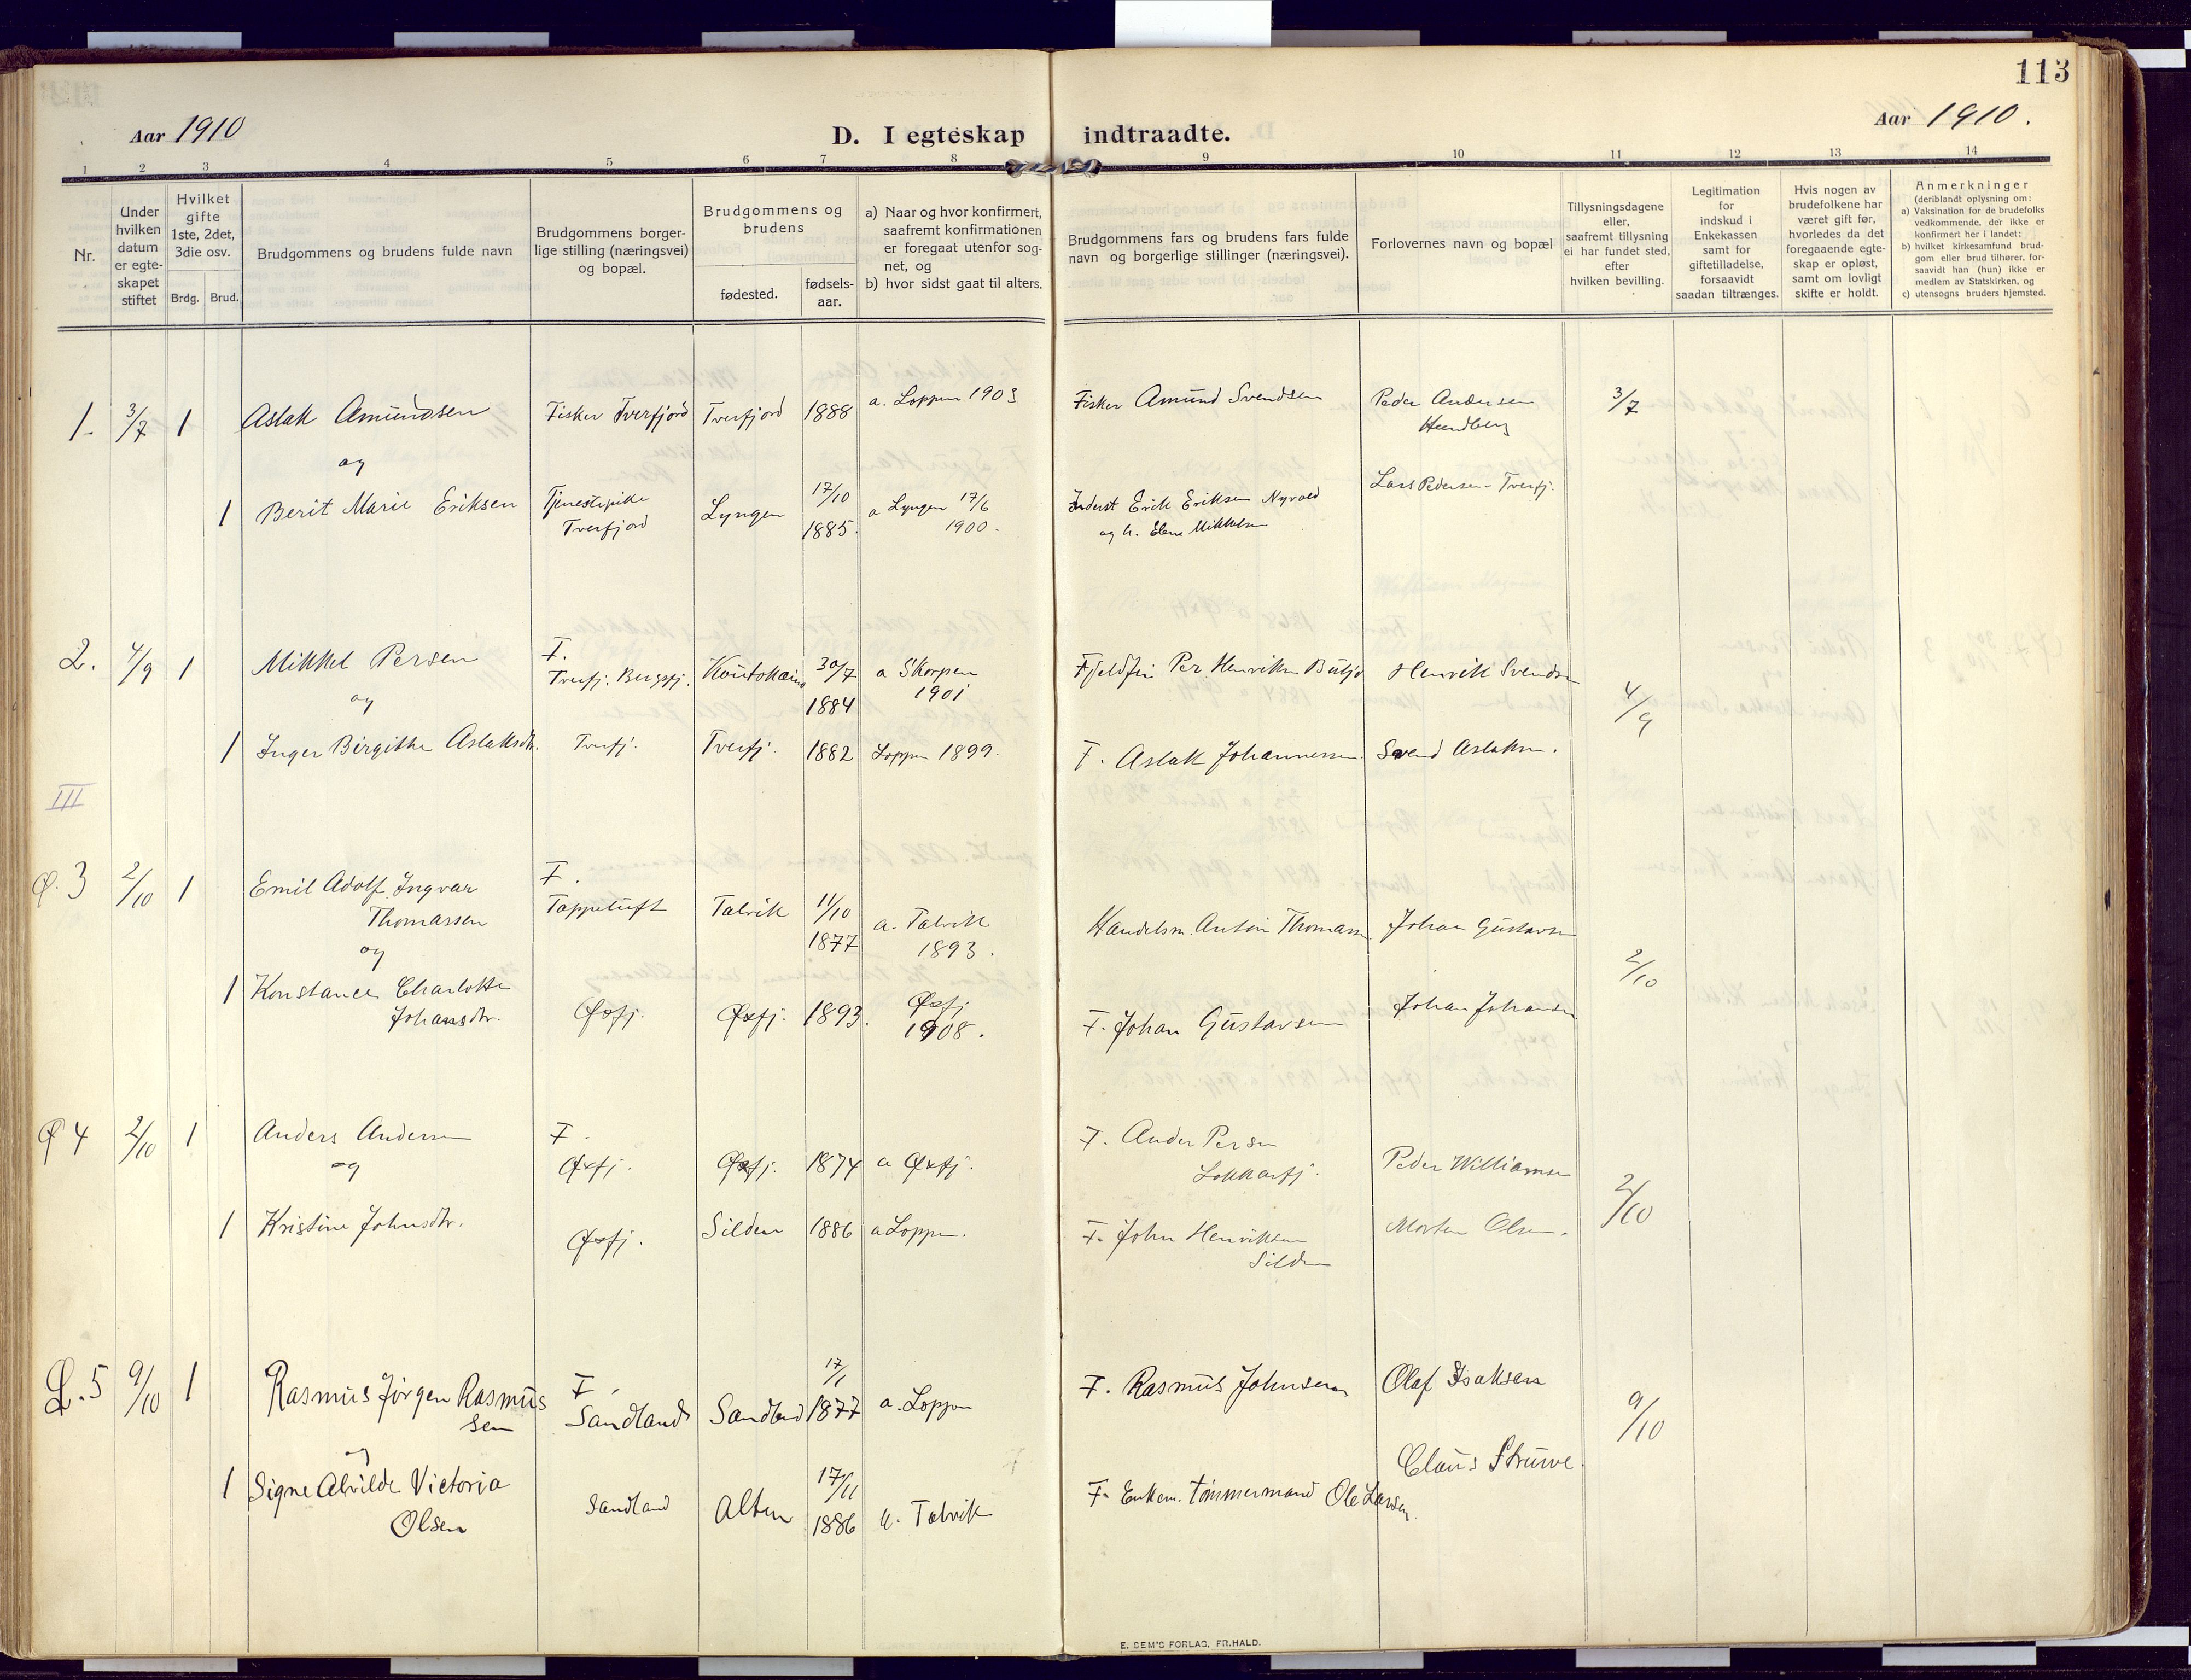 113
Aar 1910
D. I egteskap indtraadte.
Aar 1910.
1 2 3 4 5 6 7 8 9 10 11 12 13 14
Nr.
Under hvilken datum er egteskapet stiftet
Hvilket gifte 1ste, 2det, 3die osv.
Brdg. Brud.
Brudgommens og brudens fulde navn
Brudgommens borgerlige stilling (næringsvei) og bopæl.
Brudgommens og brudens
fødested.
fødselsaar.
a) Naar og hvor konfirmert, saafremt konfirmationen er foregaat utenfor sognet, og
b) hvor sidst gaat til alters.
Brudgommens fars og brudens fars fulde navn og borgerlige stillinger (næringsvei).
Forlovernes navn og bopæl
Tillysningsdagene eller, saafremt tillysning ei har fundet sted, efter hvilken bevilling.
Legitimation for indskud i Enkekassen samt for giftetilladelse, forsaavidt saadan tiltrænges.
Hvis nogen av brudefolkene har været gift før, hvorledes da det foregaaende egteskap er opløst, samt om lovligt skifte er holdt.
Anmerkninger (deriblandt oplysning om:
a) Vaksination for de brudefolks vedkommende, der ikke er konfirmert her i landet;
b) hvilket kirkesamfund brudgom eller brud tilhører, forsaavidt han (hun) ikke er medlem av Statskirken, og
c) utensogns bruders hjemsted.
1. 3/7 1 Aslak Amundsen Fisker Tverfjord Tverfjord 1888 a. Loppen 1903 Fisker Amund Svendsen Peder Andersen 3/7
og
1 Berit Marie Eriksen Tjenestepike Tverfjord Lyngen 17/10 1885. a Lyngen 17/6 1900. Inderst Erik Eriksen Nyvold
og h. Elene Mikkelsen Lars Pedersen - Tverfj.
2. 4/9 1 Mikkel Persen F. Tverfj. Bergsfj. Koutokeino 30/7 1884 a Skorpen 1901 Fjeldfin Per Henriksen Henrik Svendsen 4/9
og
1 Inger Birgithe Aslaksdtr. Tverfj. Tverfj. 1882 Loppen 1899. F. Aslak Johannessen. Svend Aslaksen.
III
Ø. 3 2/10 1 Emil Adolf Ingvar Thomassen F. Tappeluft Talvik 11/10 1877 a. Talvik 1893. Handelsm. Anton Thomassen Johan Gustavsen 2/10
og
1 Konstance Charlotte Johansdtr. Øxfj. Øxfj. 1893. Øxfj 1908. F. Johan Gustavsen Johan Johansen
Ø 4 2/10 1 Anders Andersen F. Øxfj. Øxfj. 1874 a Øxfj. F. Anders Persen Lokkarfj. Peder Williamsen 2/10
og
1 Kristine Johnsdtr. Øxfj. Silden 1886 a Loppen. F. John Henriksen Silden Morten Olsen.
L. 5 9/10 1 Rasmus Jørgen Rasmussen F. Sandland Sandland 17/1 1877 a. Loppen F. Rasmus Johnsen Olaf Isaksen 9/10
og
1 Signe Alvilde Victoria Olsen Sandland Alten 17/11 1886 a. Talvik F. Enkem. tømmermand Ole Larsen. Claus Struwe.
E. SEM'S FORLAG, FR.HALD.